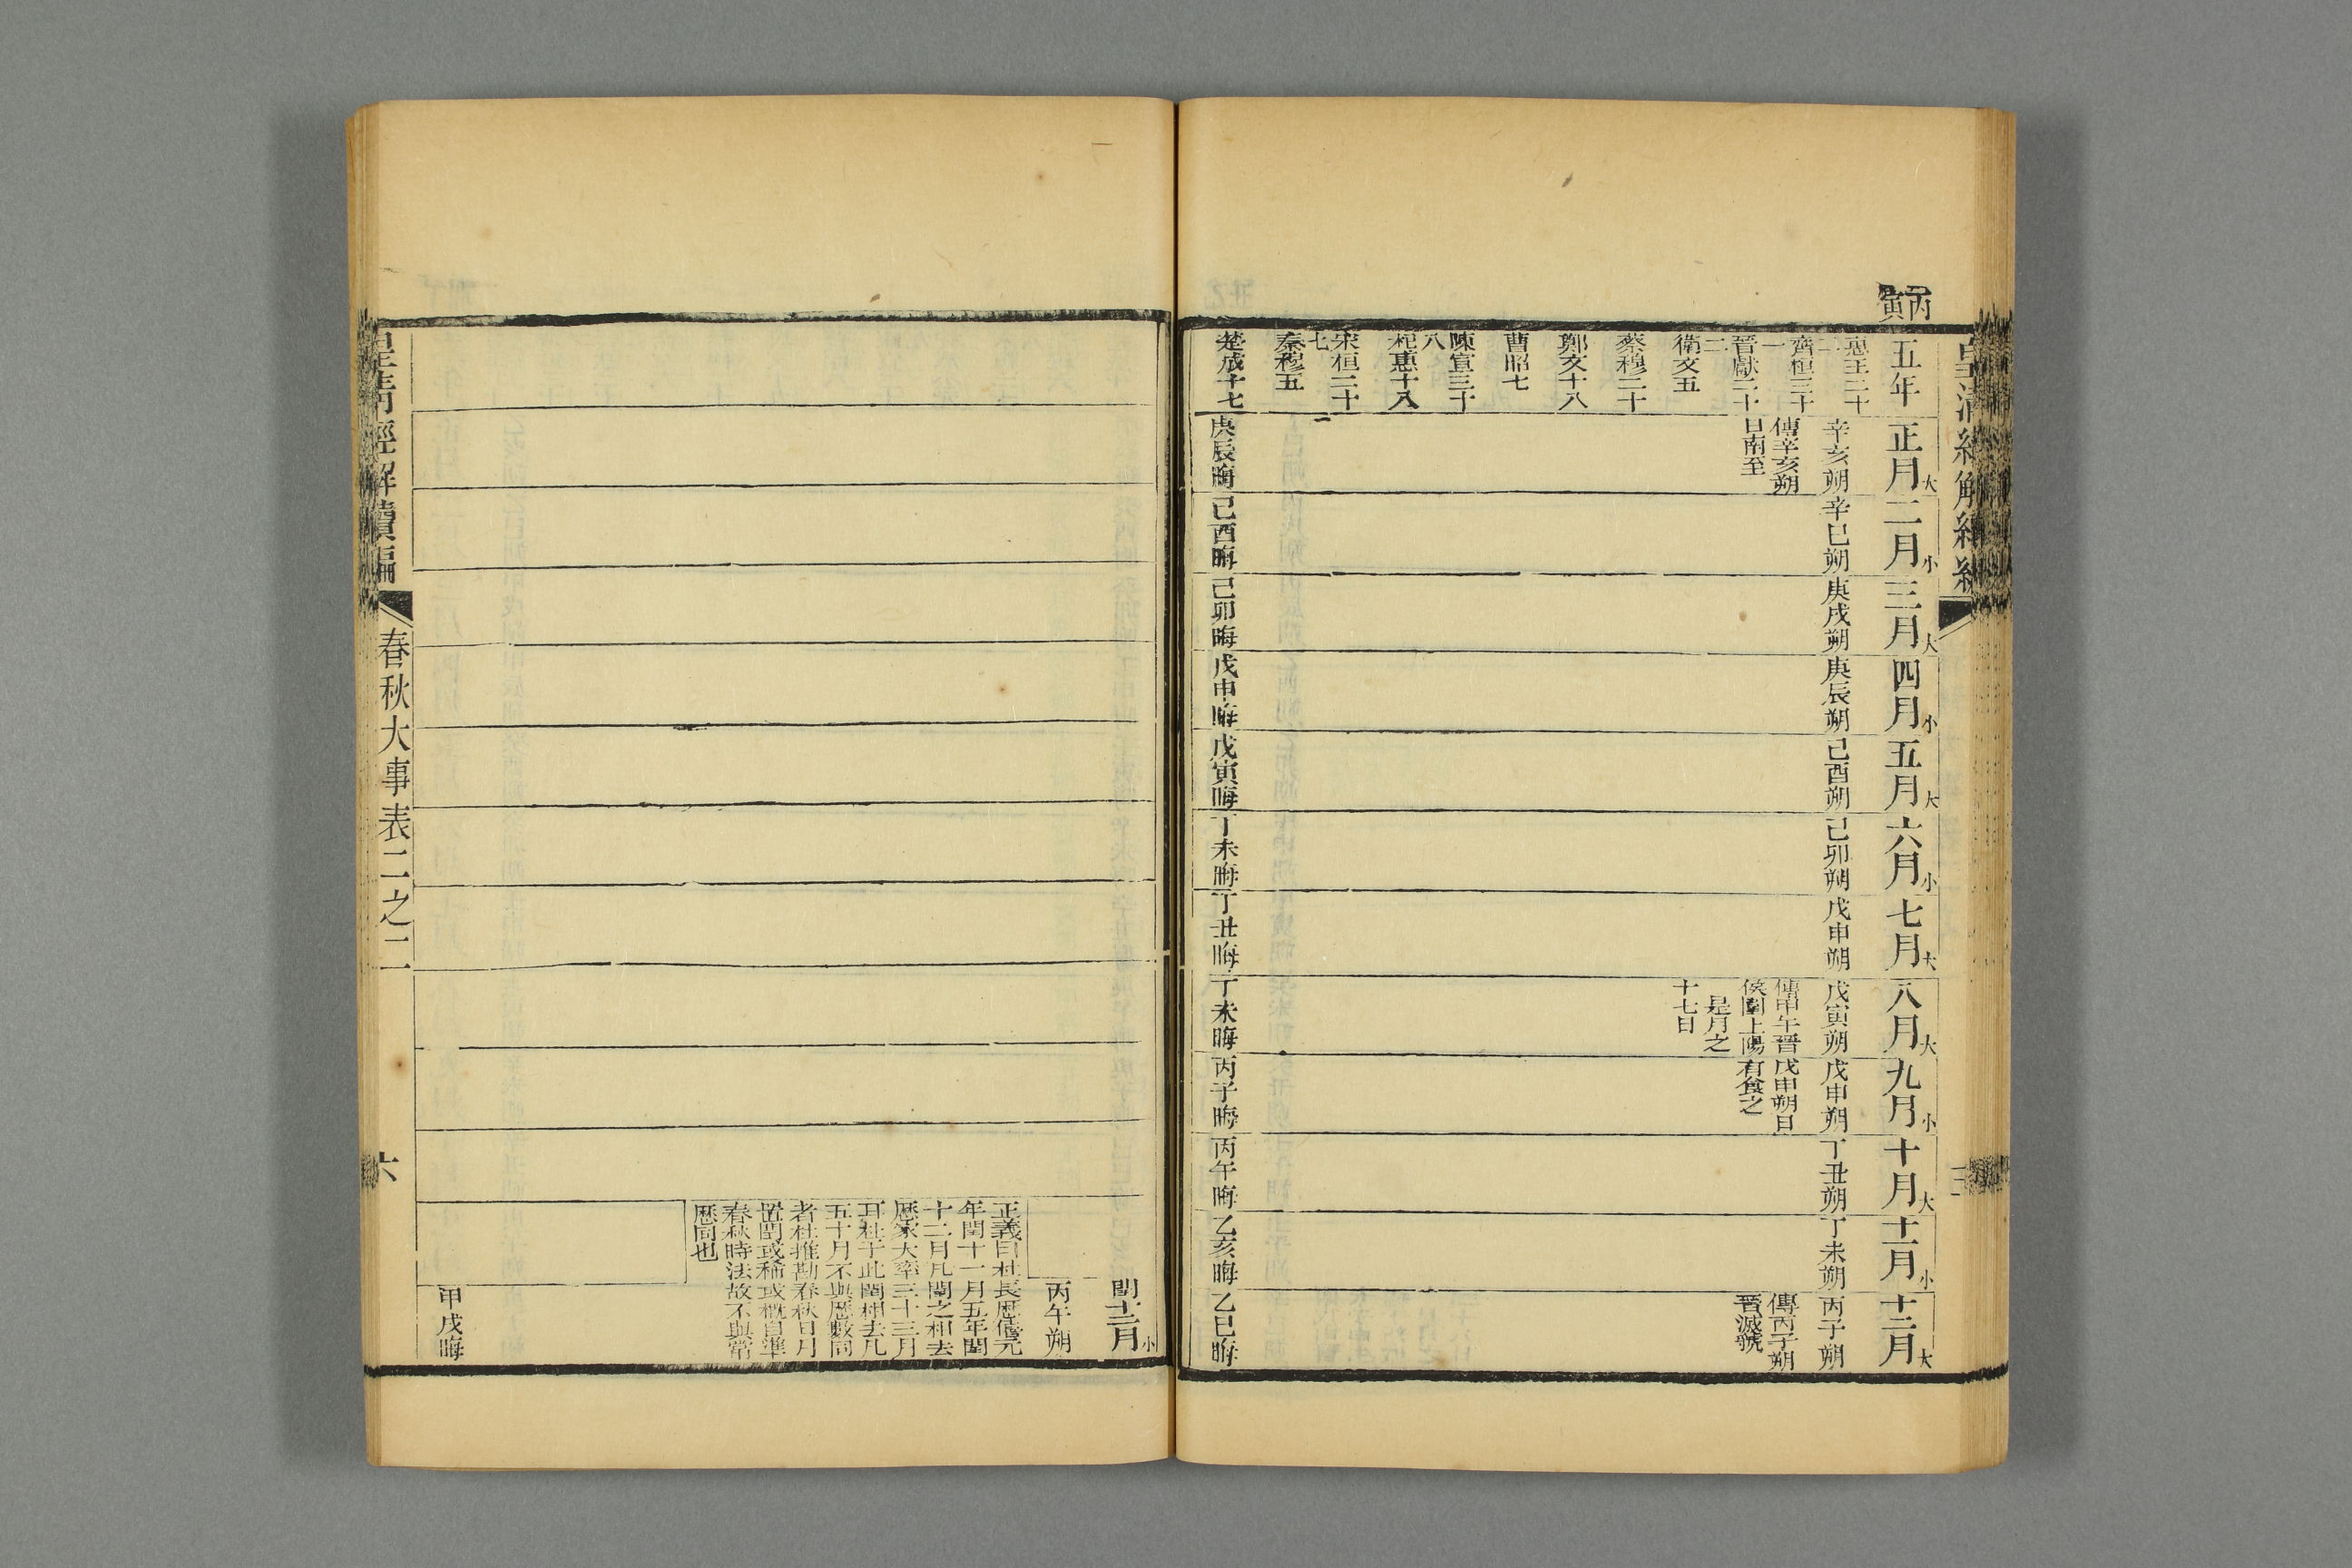 丙寅
五年
惠王二十二
齊桓三十一
晉獻二十二
衛文五
蔡穆二十
鄭文十八
曹昭七
陳宣三十八
杞惠十八
宋桓二十七
秦穆五
楚成十七
正月大
辛亥朔
傳辛亥朔
日南至
庚辰晦
二月小
辛巳朔
己酉晦
三月大
庚戌朔
己卯晦
四月小
庚辰朔
戊申晦
五月大
己酉朔
戊寅晦
六月小
己卯朔
丁未晦
七月大
戊申朔
丁丑晦
八月大
戊寅朔
傳甲午晉
侯圍上陽
是月之
十七日
丁未晦
九月小
戊申朔
戊申朔日
有食之
丙子晦
十月大
丁丑朔
丙午晦
十一月小
丁未朔
乙亥晦
十二月大
丙子朔
傳丙子朔
晉滅虢
乙巳晦
閏十二月小
丙午朔
正義曰杜長歷僖元
年閏十一月五年閏
十二月凡閏之相去
歷家大率三十三月
耳杜于此閏相去凡
五十月不與歷數同
者杜推勘春秋日月
置閏或稀或概自準
春秋時法故不與常
歷同也
甲戌晦
皇清經解續編
春秋大事表二之二
六